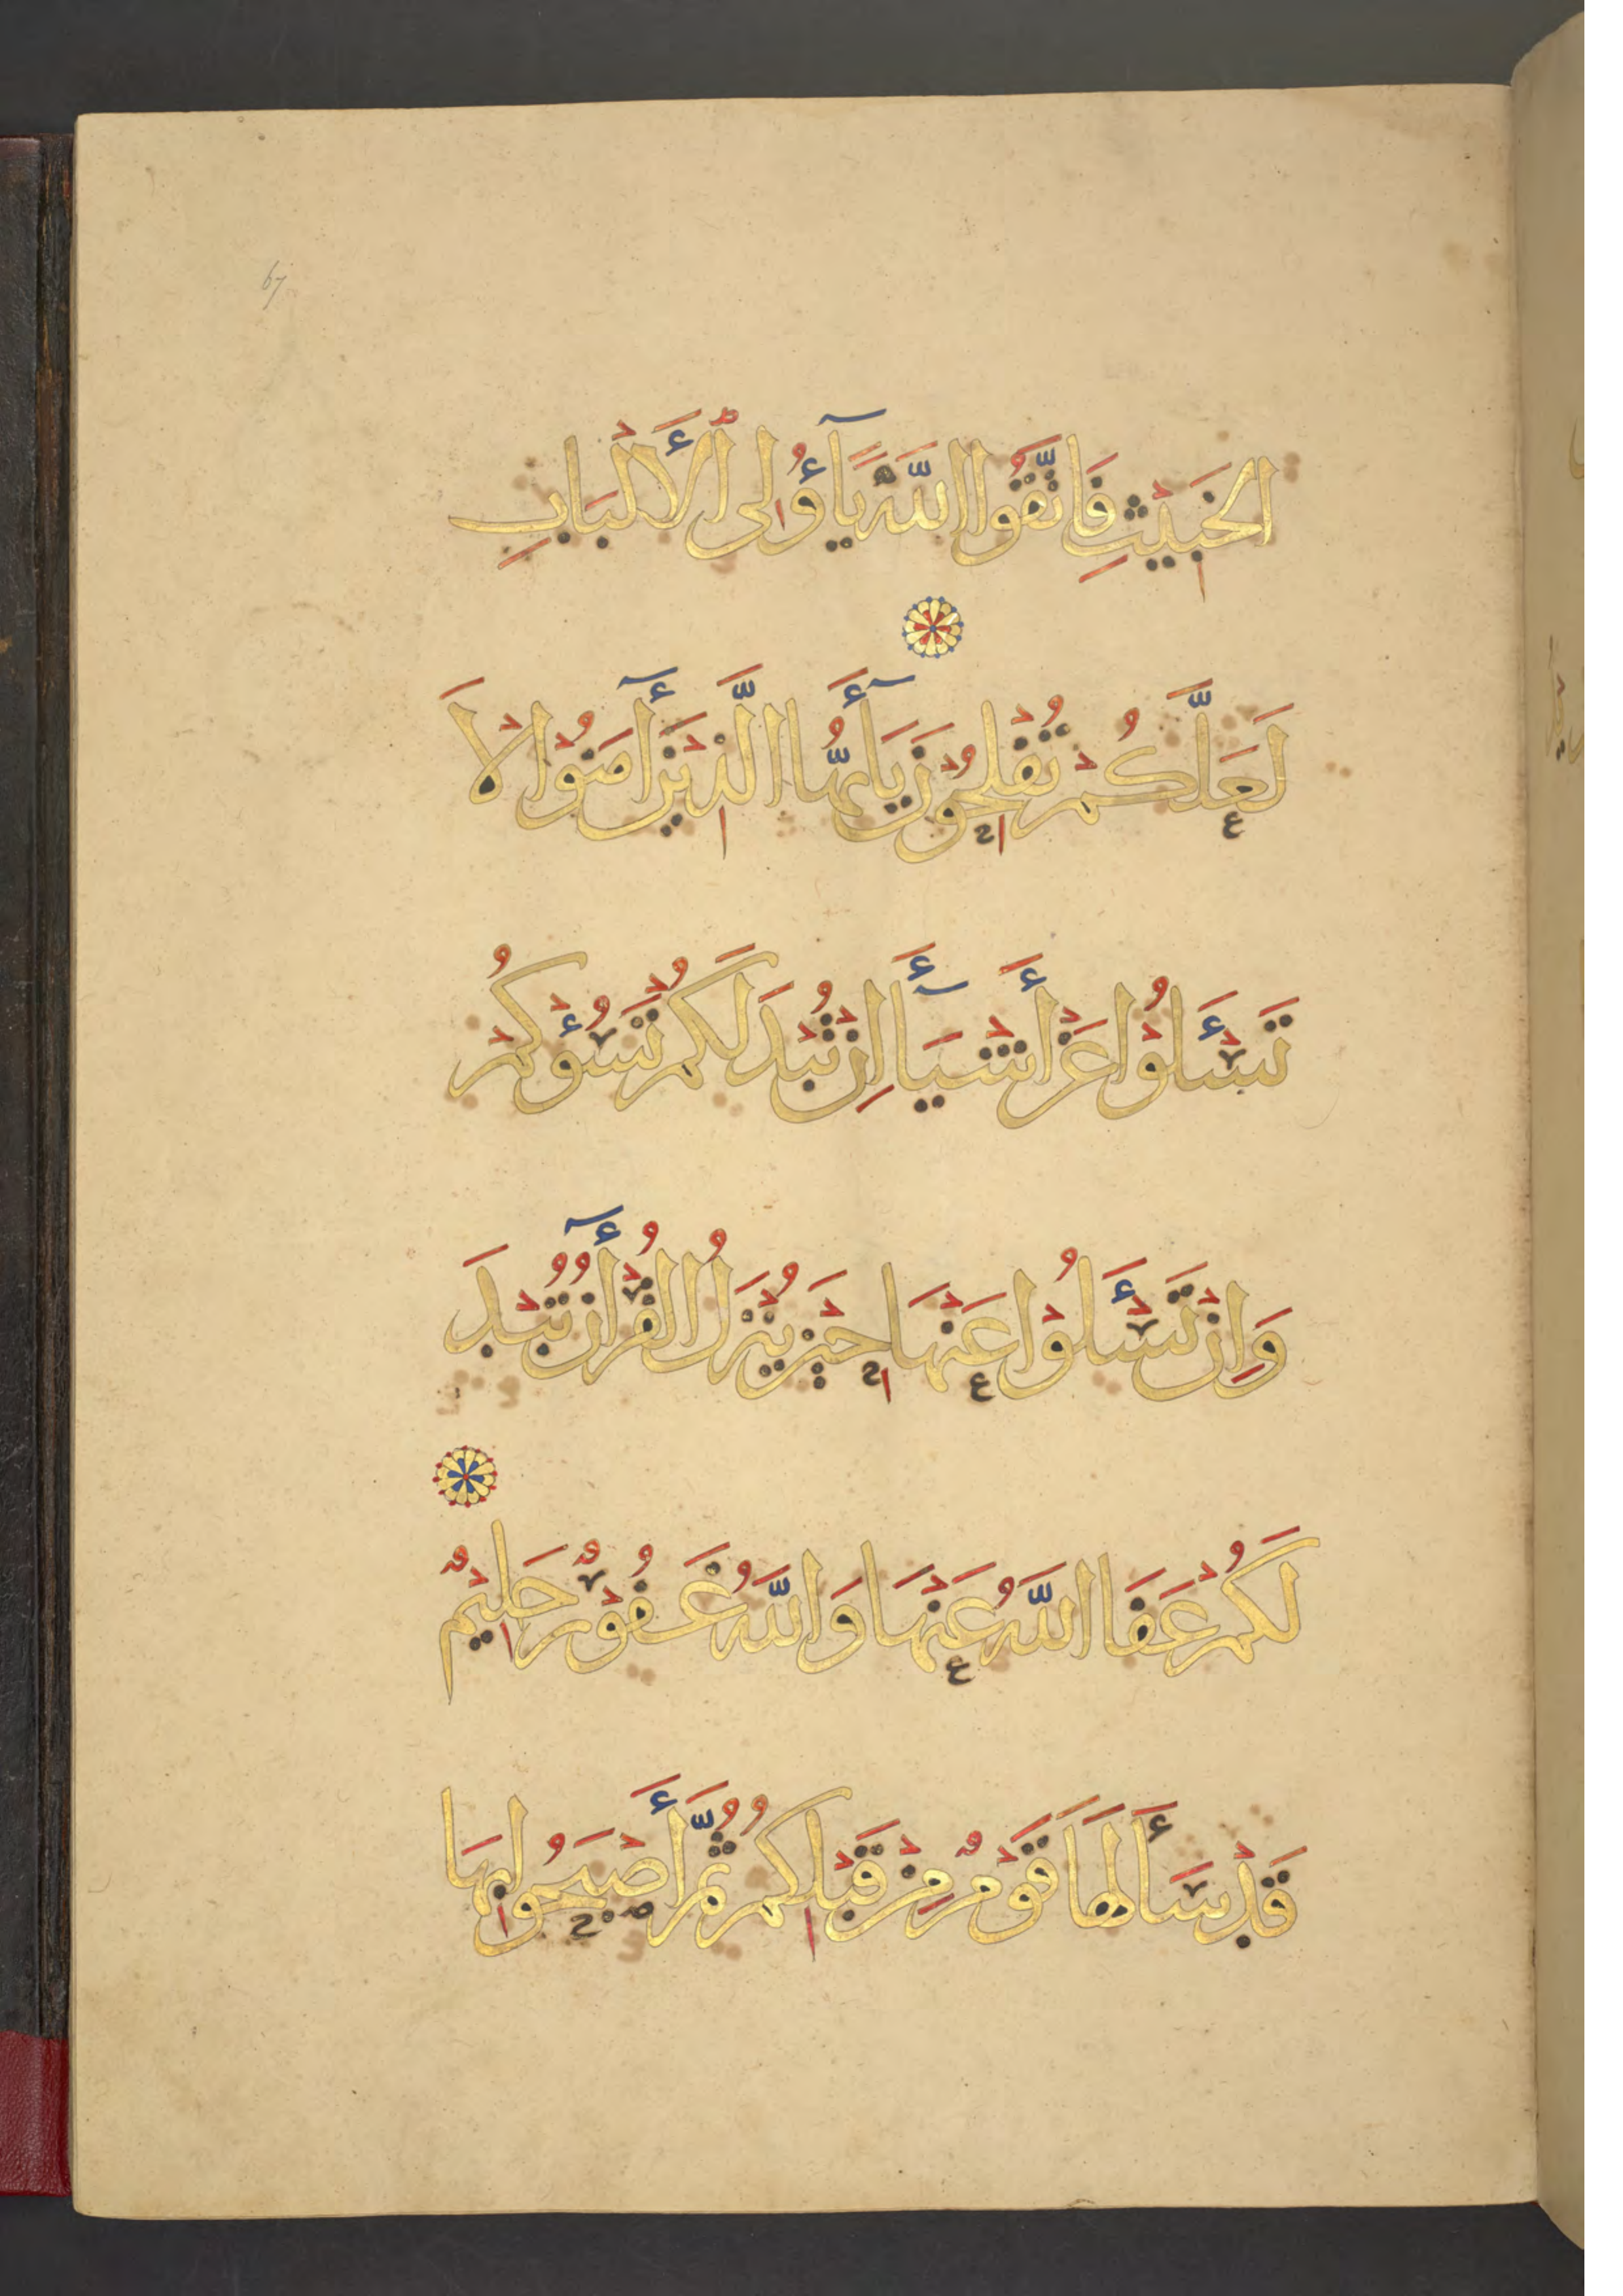 67
الخَبِيْثِ فَاتَّقُوا اللَّهَ يَآأُولِى ٱلأَلْبَابِ
لَعَلَّكُمْ تُفْلِحُوْنَ يَآأَيُّهَا الَّذِيْنَ أٓمَنُوْا لاَ
تَسْـَٔلُوْا عَنْ أَشْيَآأَ اِنْ تُبْدَ لَكُمْ تَسُؤْكُمْ
وَاِنْ تَسْـَٔلُوْا عَنْهَا حِيْنَ يُنْزَلُ القُرْأٓنُ تُبْدَ
لَكُمْ عَفَا اللَّهُ عَنْهَا وَاللَّهُ غَفُوْرٌ حَلِيْمٌ
قَدْ سَأَلَهَا قَوْمٌ مِنْ قَبْلِكُمْ ثُمَّ أَصْبَحُوا بِهَا